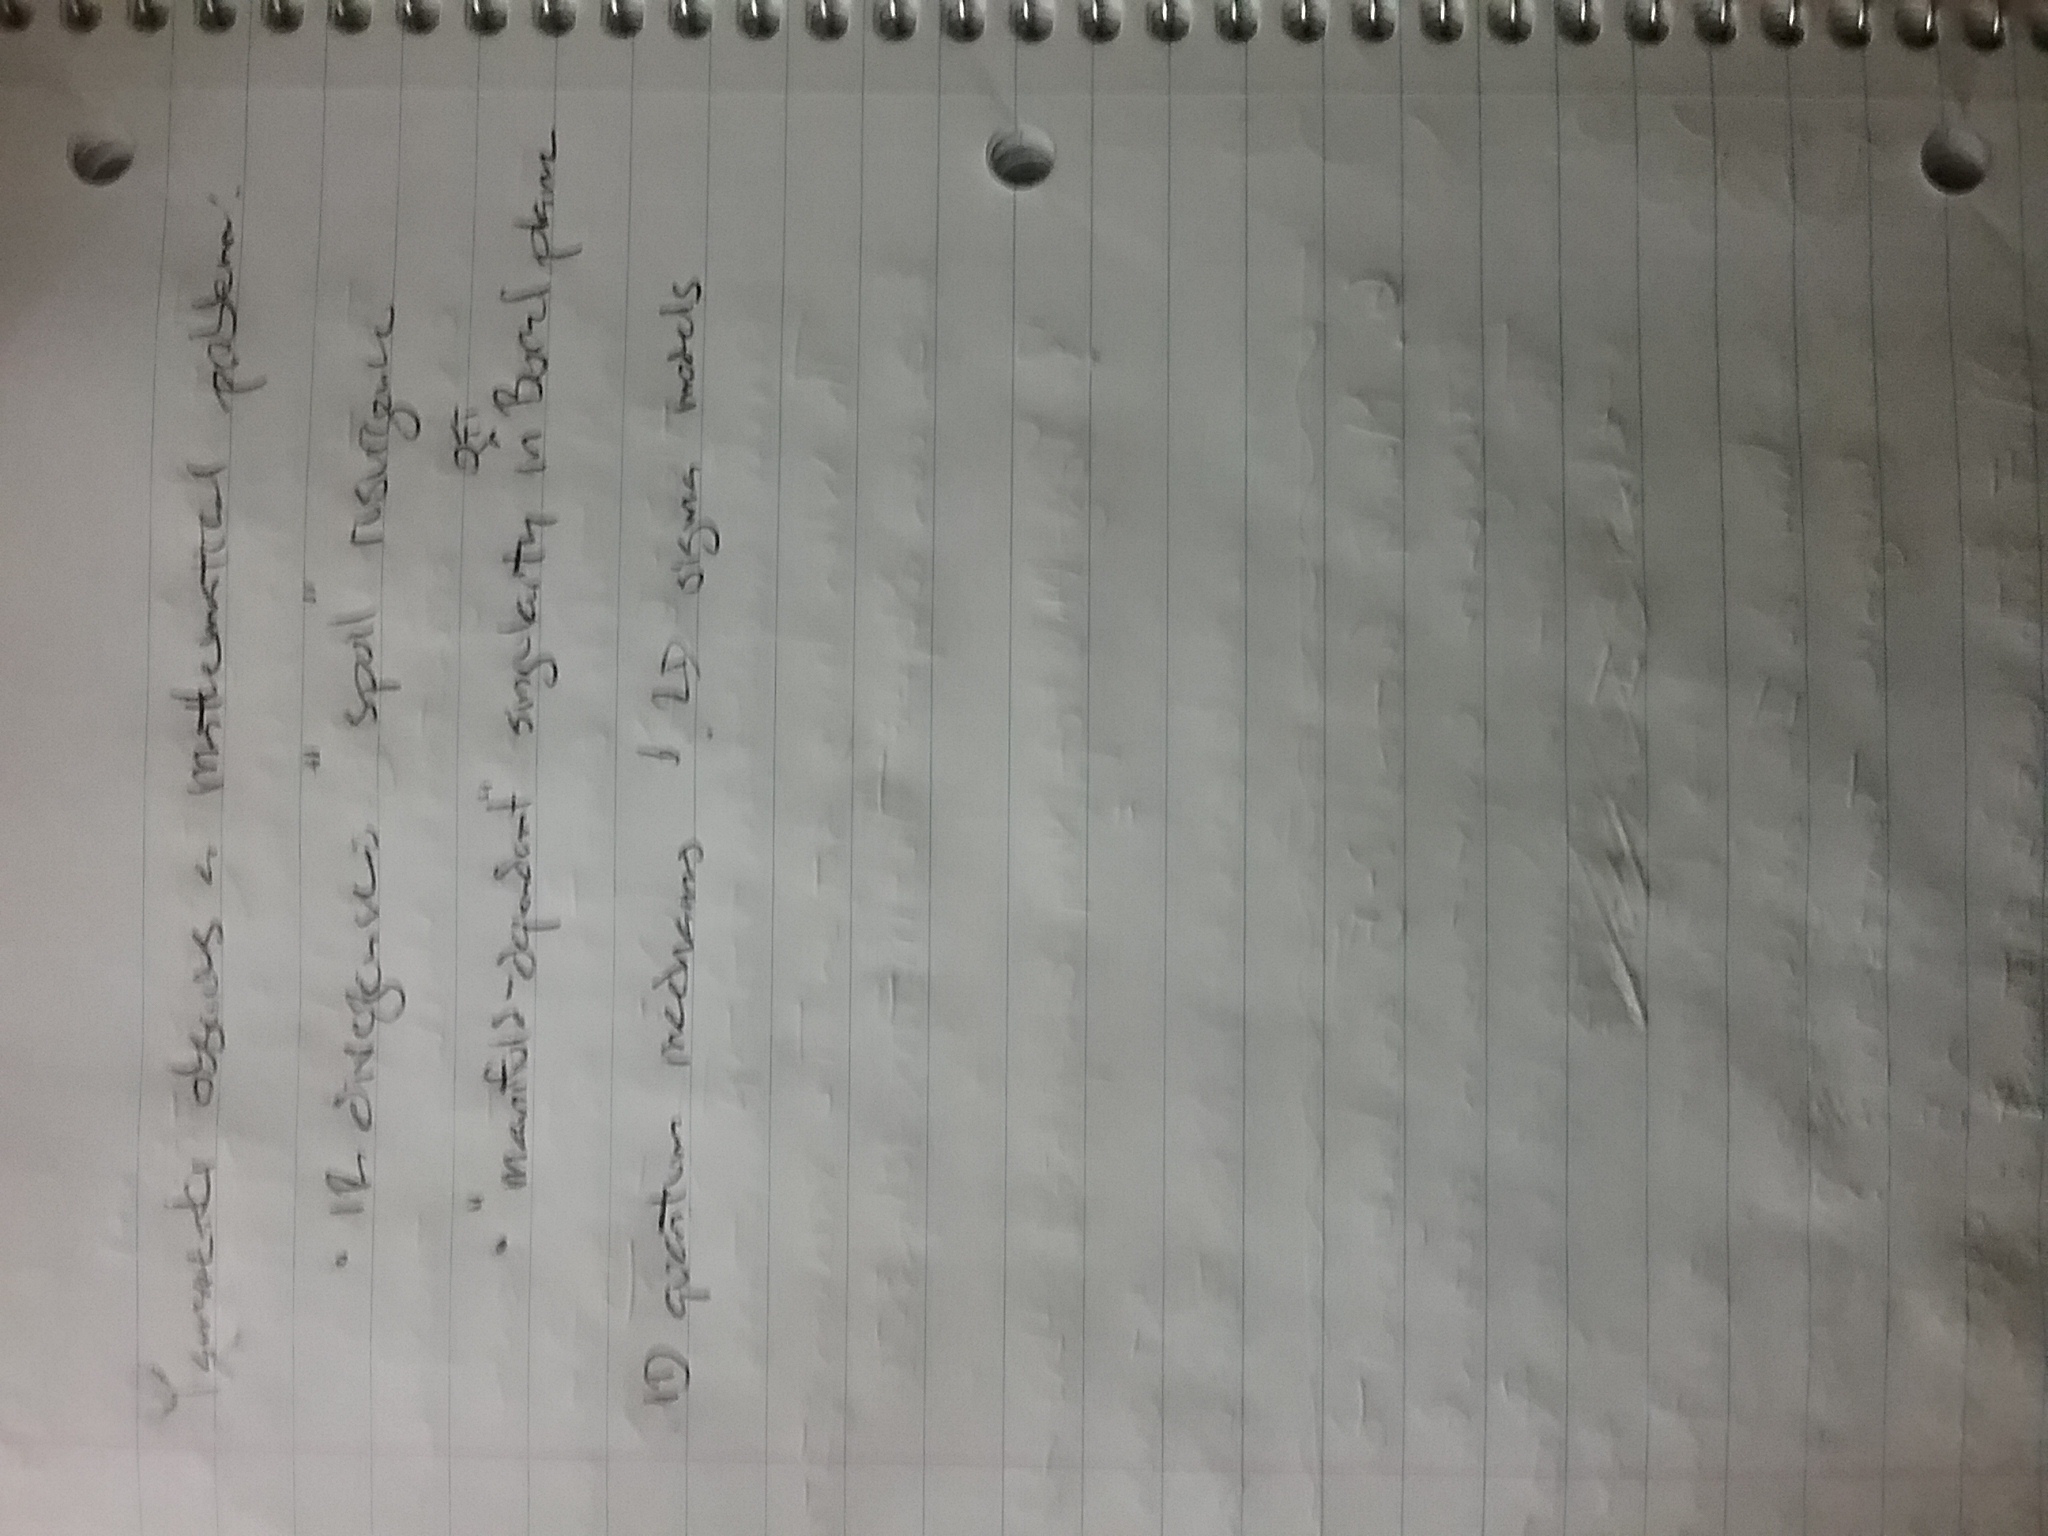 Yamazaki observes a mathematical problem:
• IR divergences "spoil" resurgence
QFT
• "manifold-dependent" singularity in ^ Borel plane
1D quantum mechanics & 2D sigma models